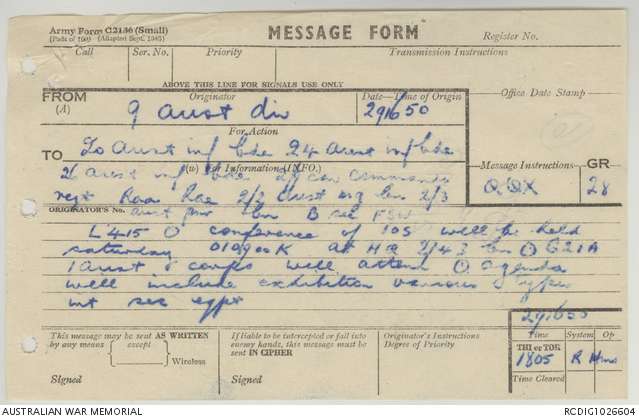 Army Form C2136 (Small)
(Pads of 100) (Adapted Sept. 1943)
MESSAGE FORM
Register No.
Call Ser. No. Priority Transmission Instructions
ABOVE THIS LINE FOR SIGNALS USE ONLY
FROM
(A)
Originator
9 aust div
Date-Time of Origin
291650
Office Date Stamp
For Action
TO
20 aust inf bde 24 aust inf bde
(w) For Information (INFO.)
26 aust inf bde 2/9 cav commando
regt Raa Rae 2/2 aust mg bn 2/3
aust pnr bn B sec FSW
Message Instructions GR
QQX 28
ORIGINATOR'S No.
L415 O conference of IOS will be held
saturday 010900K at HQ 2/43 bn O G21A
1 aust corps will attend O agenda
will include exhibition various types
int sec eqpt
291650
This message may be sent AS WRITTEN
by any means except
Wireless
Signed
If liable to be intercepted or fall into
enemy hands, this message must be
sent IN CIPHER
Signed
Originator's Instructions
Degree of Priority
Time System Op
THI or TOR
1805 R
Time Cleared
AUSTRALIAN WAR MEMORIAL
RCDIG1026604